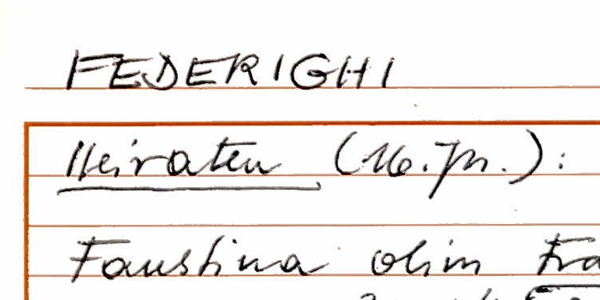 FEDERIGHI
Heiraten (16. Jh.):
Faustina olim Fra